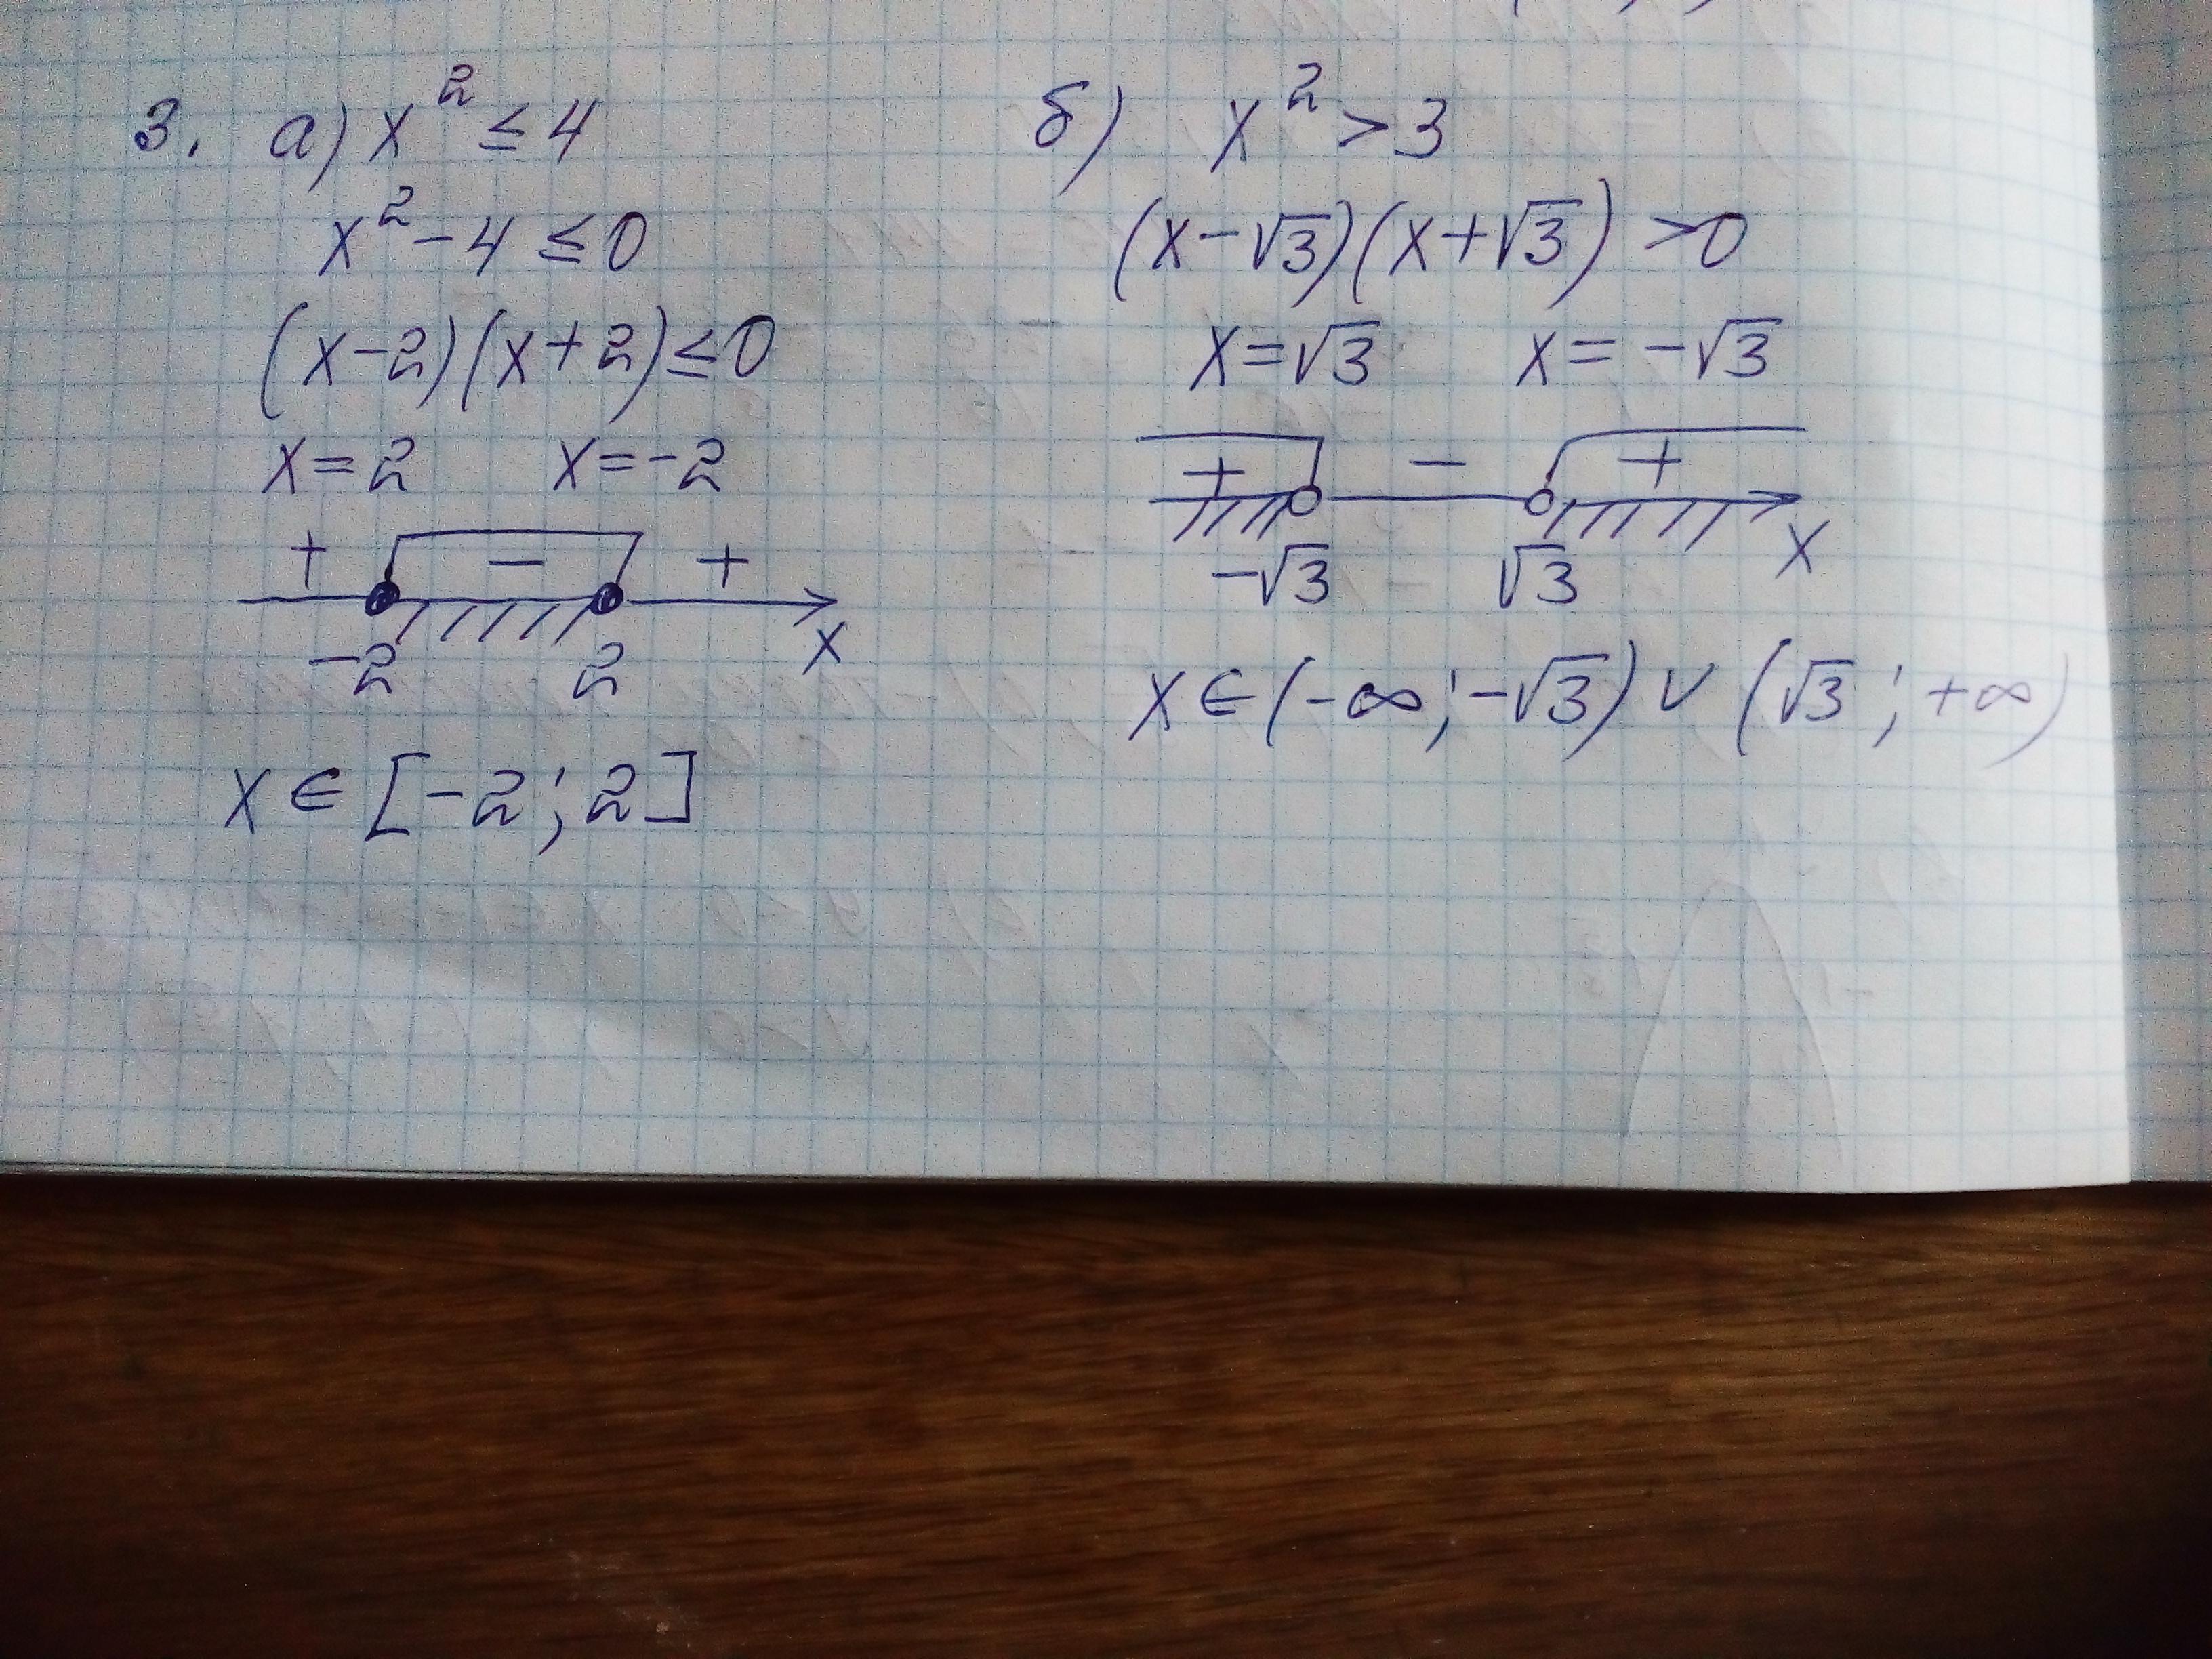 3. а) x² ≤ 4
x² - 4 ≤ 0
(x - 2)(x + 2) ≤ 0
x = 2 x = -2
+ - +
-2 2 x
x ∈ [-2; 2]
б) x² > 3
(x - √3)(x + √3) > 0
x = √3 x = -√3
+ - +
-√3 √3 x
x ∈ (-∞; -√3) ∨ (√3; +∞)